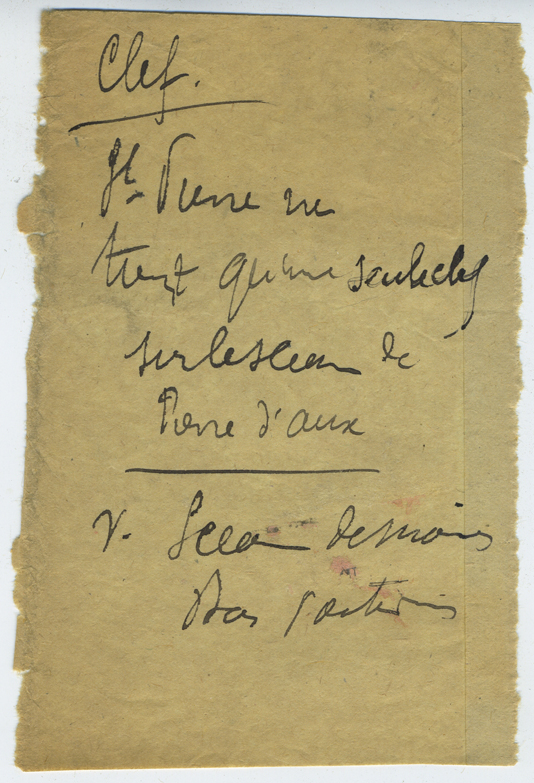 Clef.
St Pierre ne
tient qu'une seule clef
sur le sceau de
Pierre d'aux
v. Sceau des moines
Bas